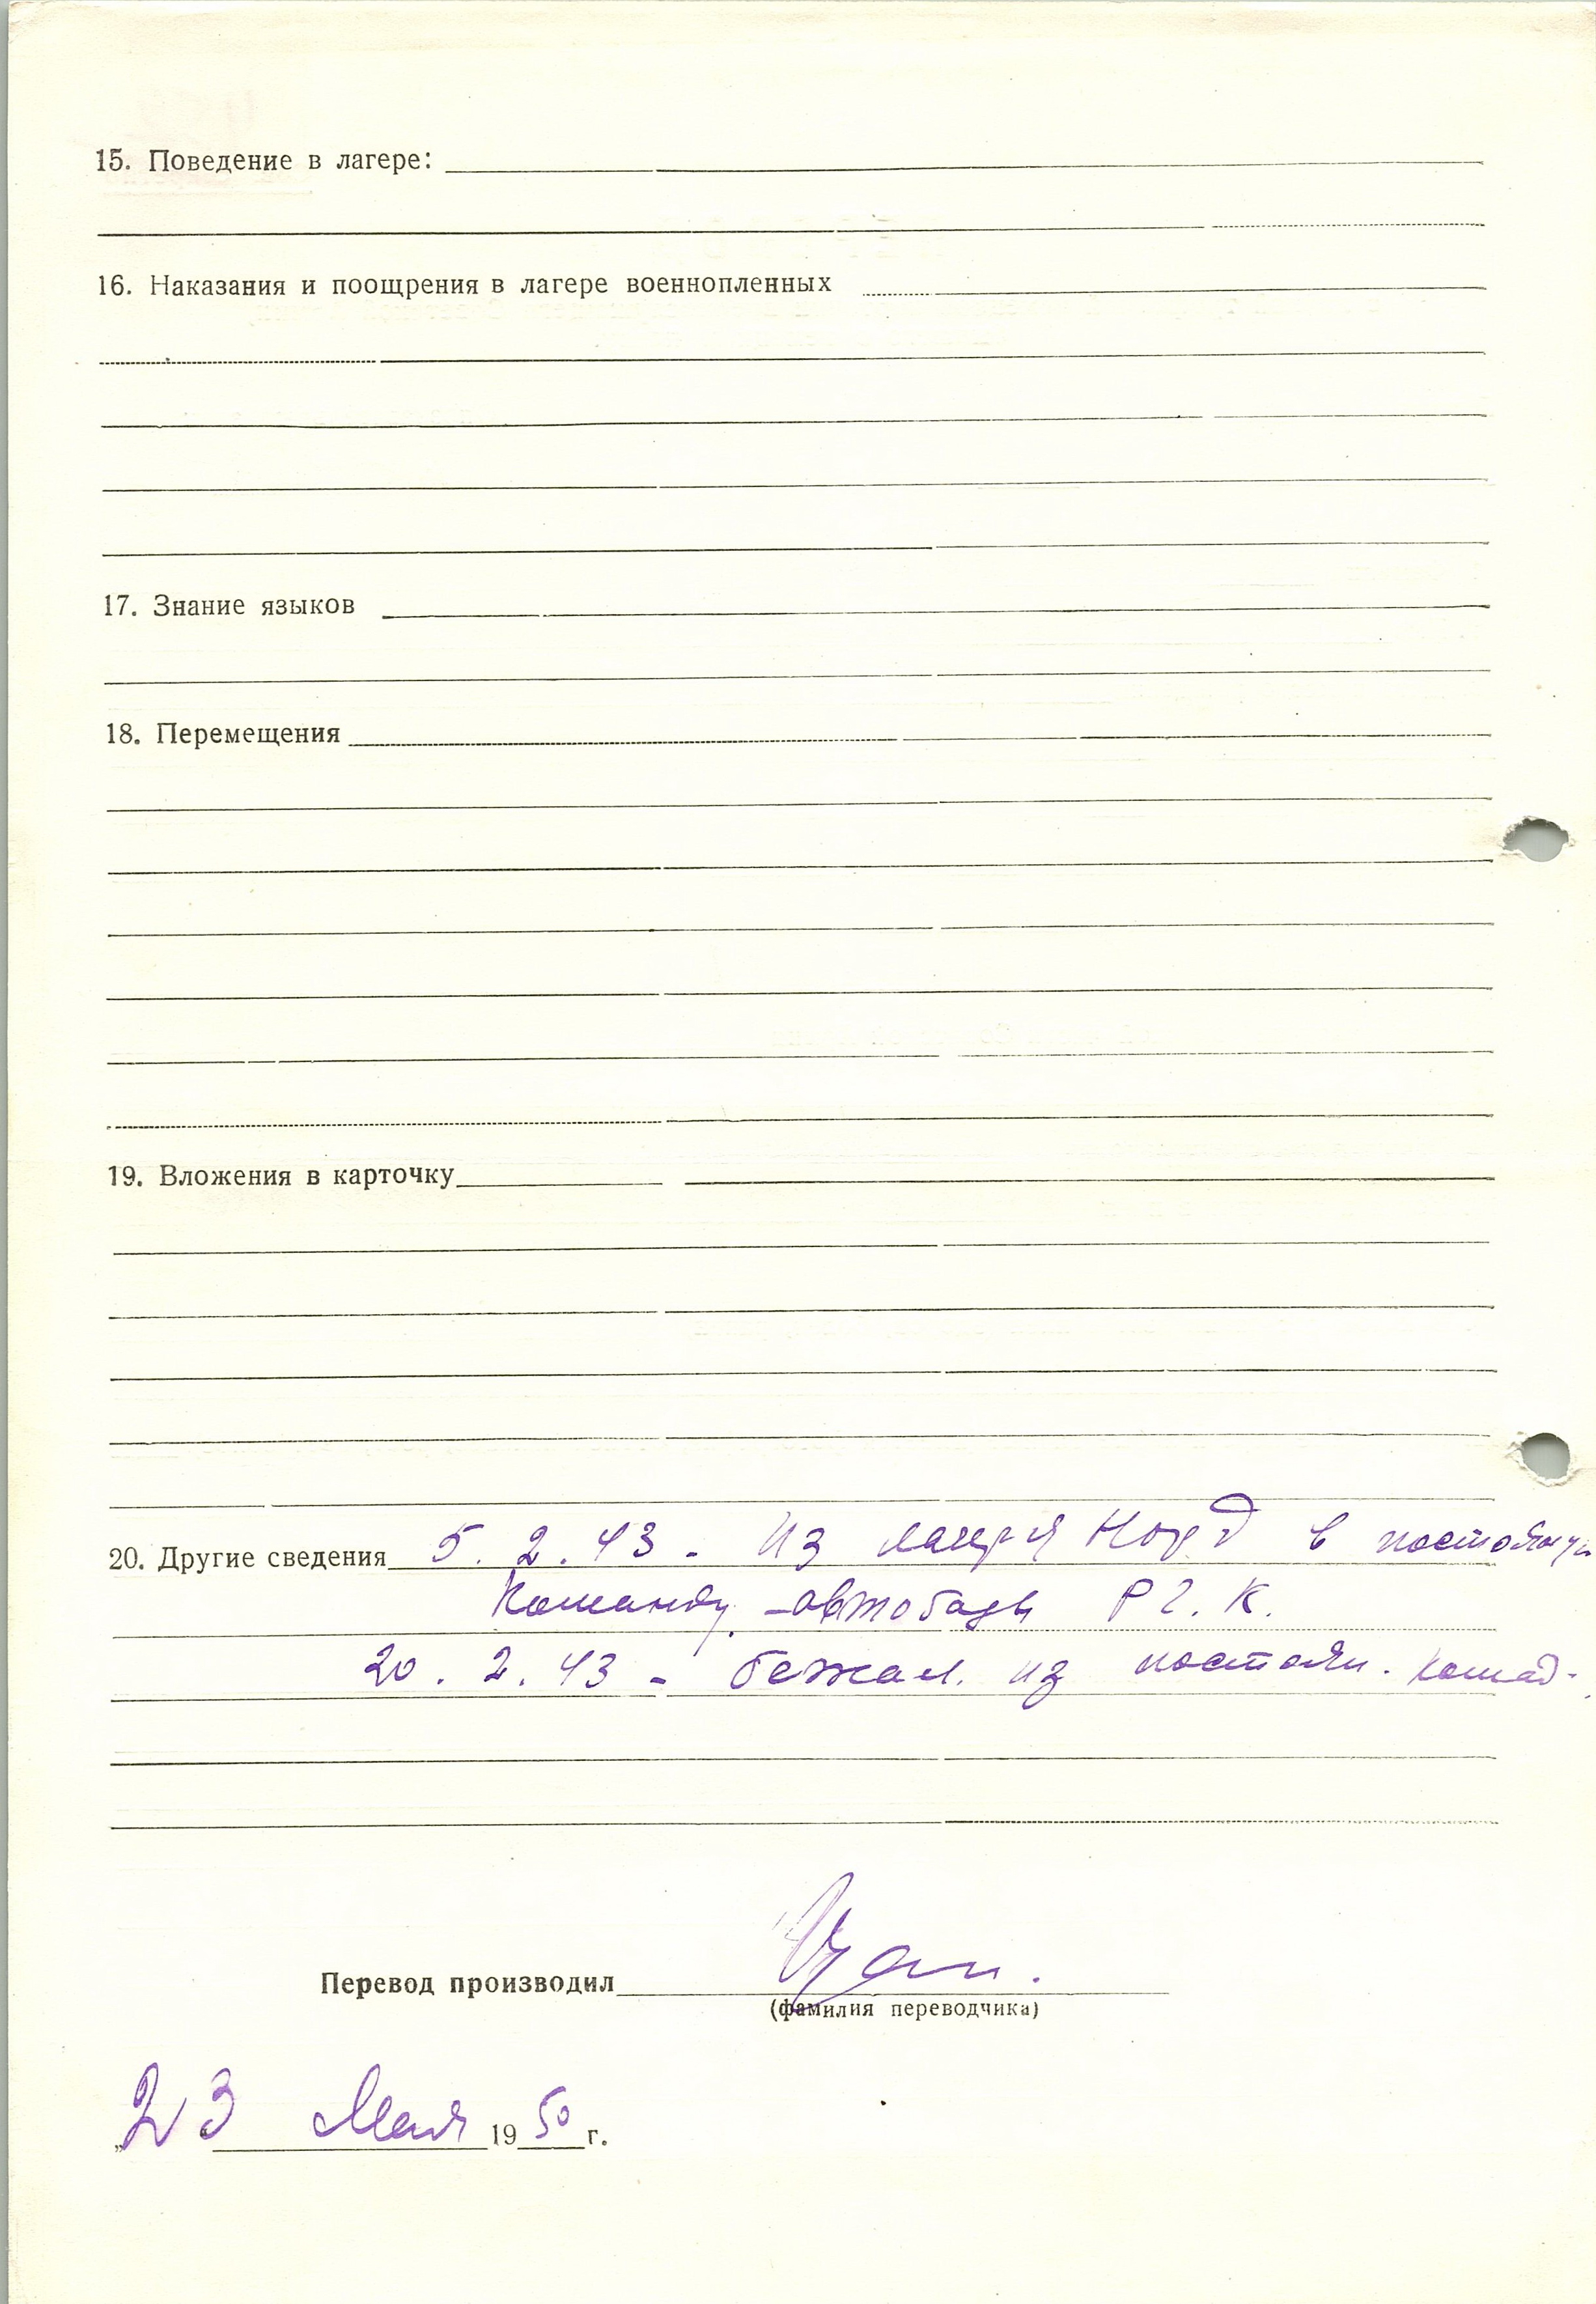 15. Поведение в лагере:
16. Наказания и поощрения в лагере военнопленных
17. Знание языков
18. Перемещения
19. Вложения в карточку
20. Другие сведения 5.2.43 - из лагеря Норд в постоянную
команду - автобазы
20.2.43 - бежал из постоян. команд.
Перевод производил
(фамилия переводчика)
„23 Мая 1950 г.